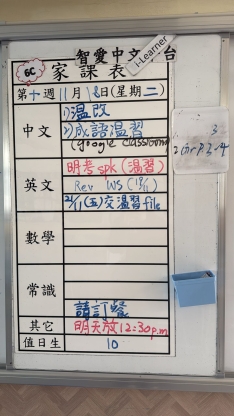 智愛中文 台
i-Learner
6C 家課表
第十週11月18日(星期二)
中文
1)温改
2)成語温習
(google classroom)
英文
明考spk(温習)
Rev WS (136)
21/11(五)交温習file
數學
常識
請訂餐
其它 明天放12:30p.m
值日生 10
3